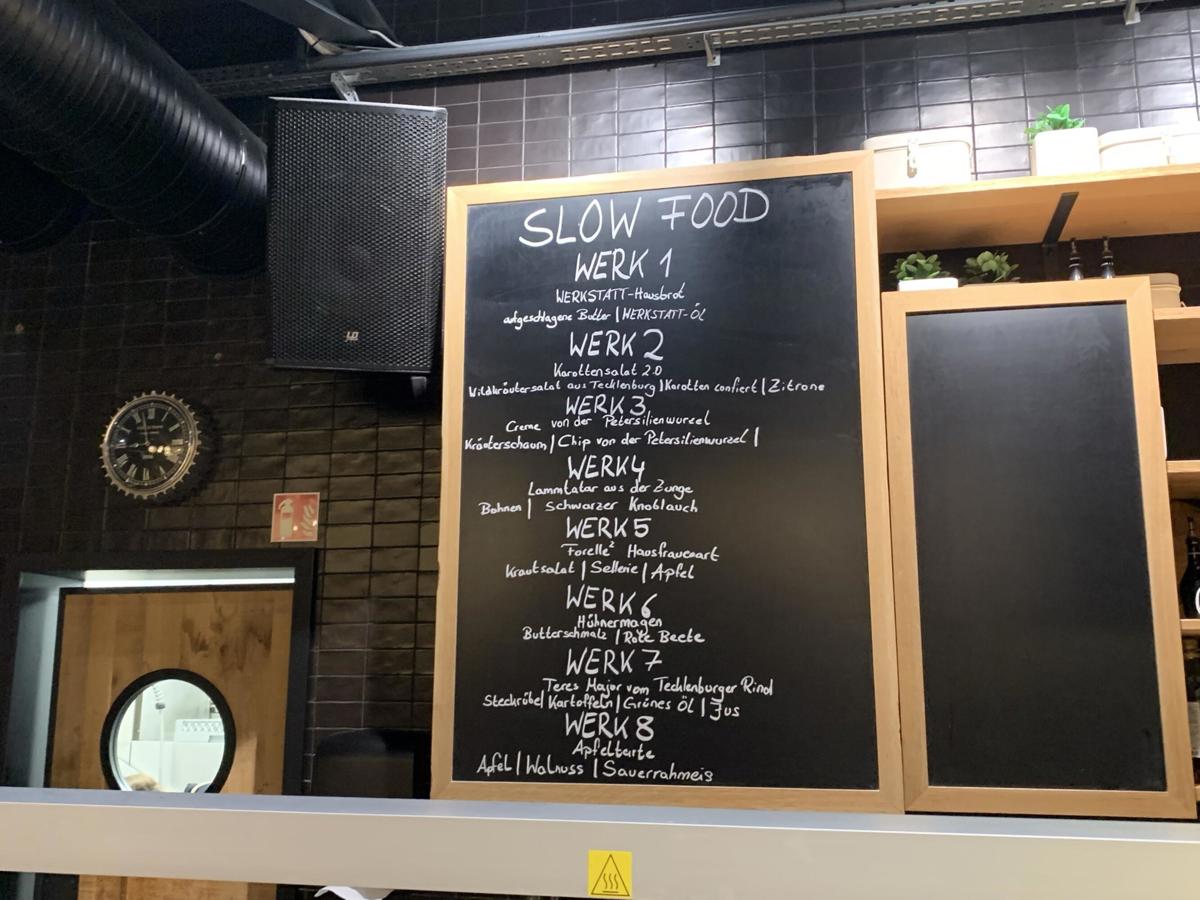 SLOW FOOD
WERK 1
WERKSTATT-Hausbrot
aufgeschlagene Butter | WERKSTATT-ÖL
WERK 2
Karottensalat 2.0
Wildkräutersalat aus Tecklenburg | Karotten confiert | Zitrone
WERK 3
Creme von der Petersilienwurzel
Kräuterschaum | Chip von der Petersilienwurzel |
WERK 4
Lammtatar aus der Zunge
Bohnen | Schwarzer Knoblauch
WERK 5
Forelle² Hausfrauenart
Krautsalat | Sellerie | Apfel
WERK 6
Hühnermagen
Butterschmalz | Rote Beete
WERK 7
Teres Major vom Tecklenburger Rind
Steckrübe | Kartoffeln | Grünes Öl | Jus
WERK 8
Apfeltarte
Apfel | Walnuss | Sauerrahmeis
LD